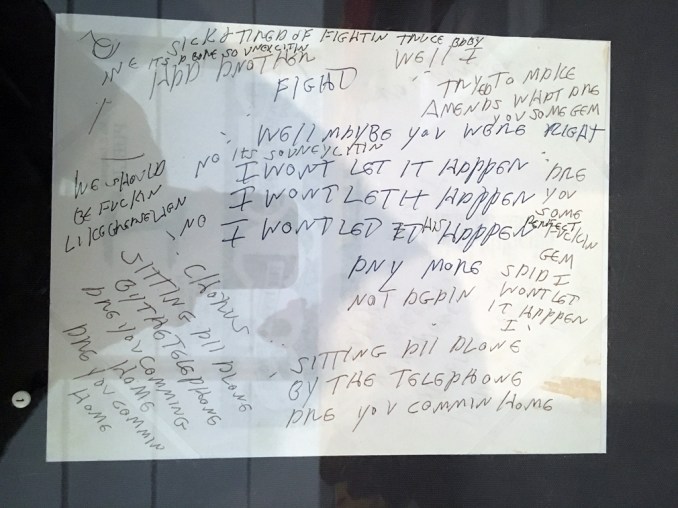 SICK & TIRED OF FIGHTIN TRUCE BABY
WE ITS B SO UNEXCITIN
HAD ANOTHER
FIGHT
WEll I
TRY TO MAKE
TRIED
AMENDS WHAT ARE
YOU SOME GEM
WEll MAYBE YOU WERE RIGHT
NO ITS SO UNCYCITIN
I WONT LET IT HAPPEN
I WONT LET IT HAPPEN
NO I WONT LED IT THIS HAPPEN
ANY MORE
NOT AGAIN
ARE
YOU
SOME
PERFECT
FUCKIN
GEM
SAID I
WONT LET
IT HAPPEN
I
WE SHOULD
BE FUCKIN
LIKE
CHORUS
SITTING All ALONE
BY THE TELEPHONE
ARE YOU COMMING
HOME
ARE YOU COMMIN
HOME
SITTING All ALONE
BY THE TELEPHONE
ARE YOU COMMIN HOME